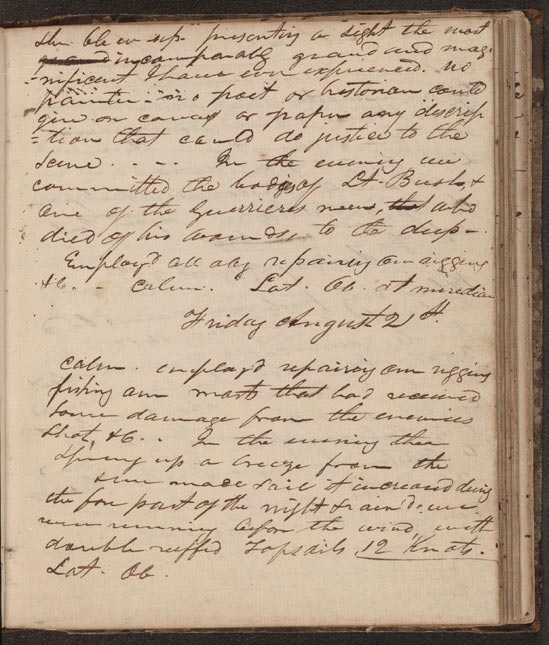 she blew up presenting a sight the most
incomparably grand and mag-
-nificent I have ever experienced. No
painter, no poet or historian could
give on canvas or paper any descrip
-tion that could do justice to the
scene. . - - In the evening we
committed the bodies of Lt. Bush, &
one of the Guerrieres men, who
died of his wounds, to the deep -
Employ'd all day repairing our rigging
&c. - Calm. Lat. Ob. at meridian
Friday August 21st.
Calm. employ'd repairing our rigging
fishing our masts that had received
some damage from the enemies
shot, &c. . In the evening ther
sprung up a breeze from the
made sail it increased during
the fore part of the night & rain'd. we
were running before the wind, with
double reffed Topsails, 12 Knots.
Lat. Ob.